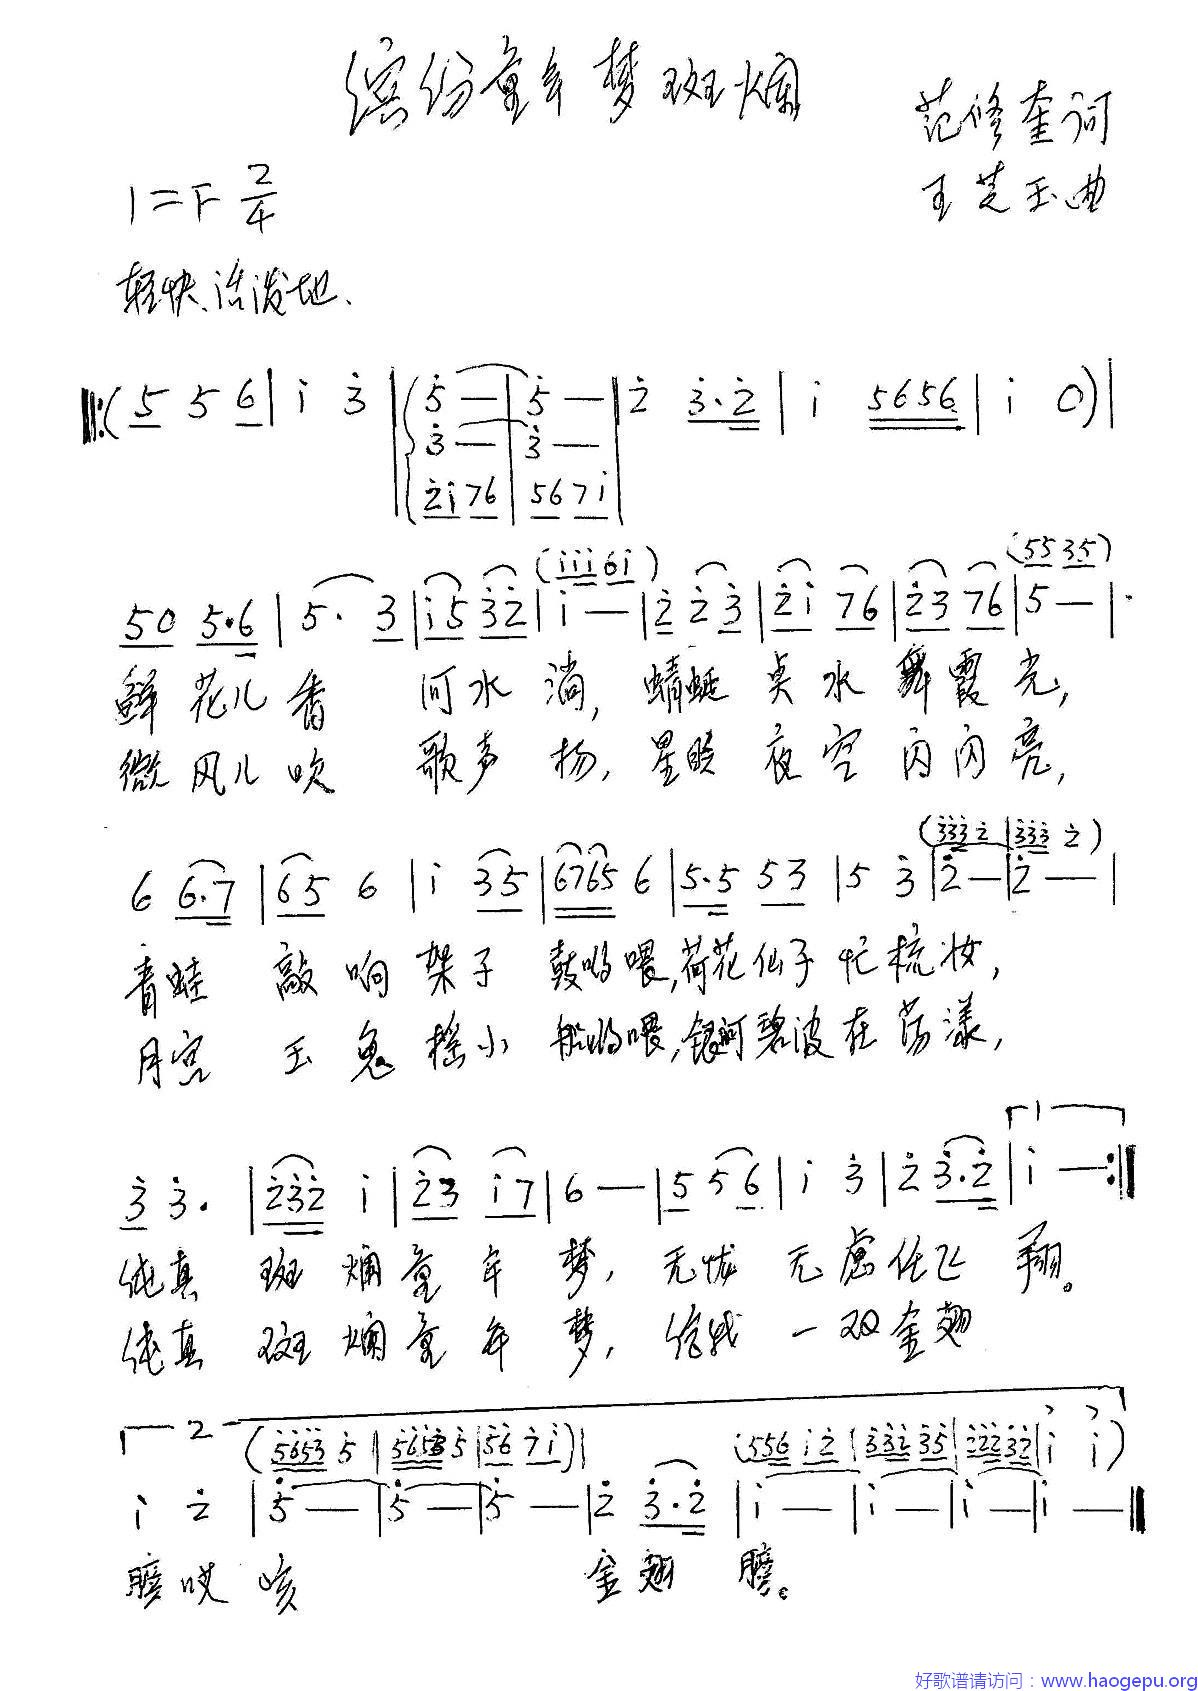 缤纷童年梦斑斓
范修奎词
王芝玉曲
1=F 2/4
轻快、活泼地.
(5 5 6 | i 3 | 5 — | 5 — | 2 3·2 | i 5656 | i 0) |
3 — | 3 —
2i76 | 567i
(iii 6i) (55 35)
50 5·6 | 5· 3 | i5 32 | i — | 2 2 3 | 2i 76 | 23 76 | 5 — |
鲜花儿香 河水淌,蜻蜓点水舞霞光,
微风儿吹 歌声扬,星眨夜空闪闪亮,
(333 2 | 333 2)
6 6·7 | 65 6 | i 35 | 6765 6 | 5·5 53 | 5 3 | 2 — | 2 — |
青蛙 敲响架子 鼓哟喂,荷花仙子忙梳妆,
月宫 玉兔摇小 船哟喂,银河碧波在荡漾,
1
3 3· | 232 i | 23 i7 | 6 — | 5 5 6 | i 3 | 2 3·2 | i — :|
纯真 斑斓童年梦,无忧无虑任飞翔。
纯真 斑斓童年梦,给我一双金翅
2
(5653 5 | 5653 5 | 56 7i) (556 i2 | 332 35 | 222 32 | i i)
i 2 | 5 — | 5 — | 5 — | 2 3·2 | i — | i — | i — | i — ||
膀哎咳 金翅膀。
好歌谱请访问:www.haogepu.org